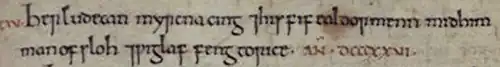 her ludecan myrcna cing ⁊ his fif ealdormenn mid him
man ofsloh ⁊ wiglaf feng to rice. AN̄. DCCCXXVI.